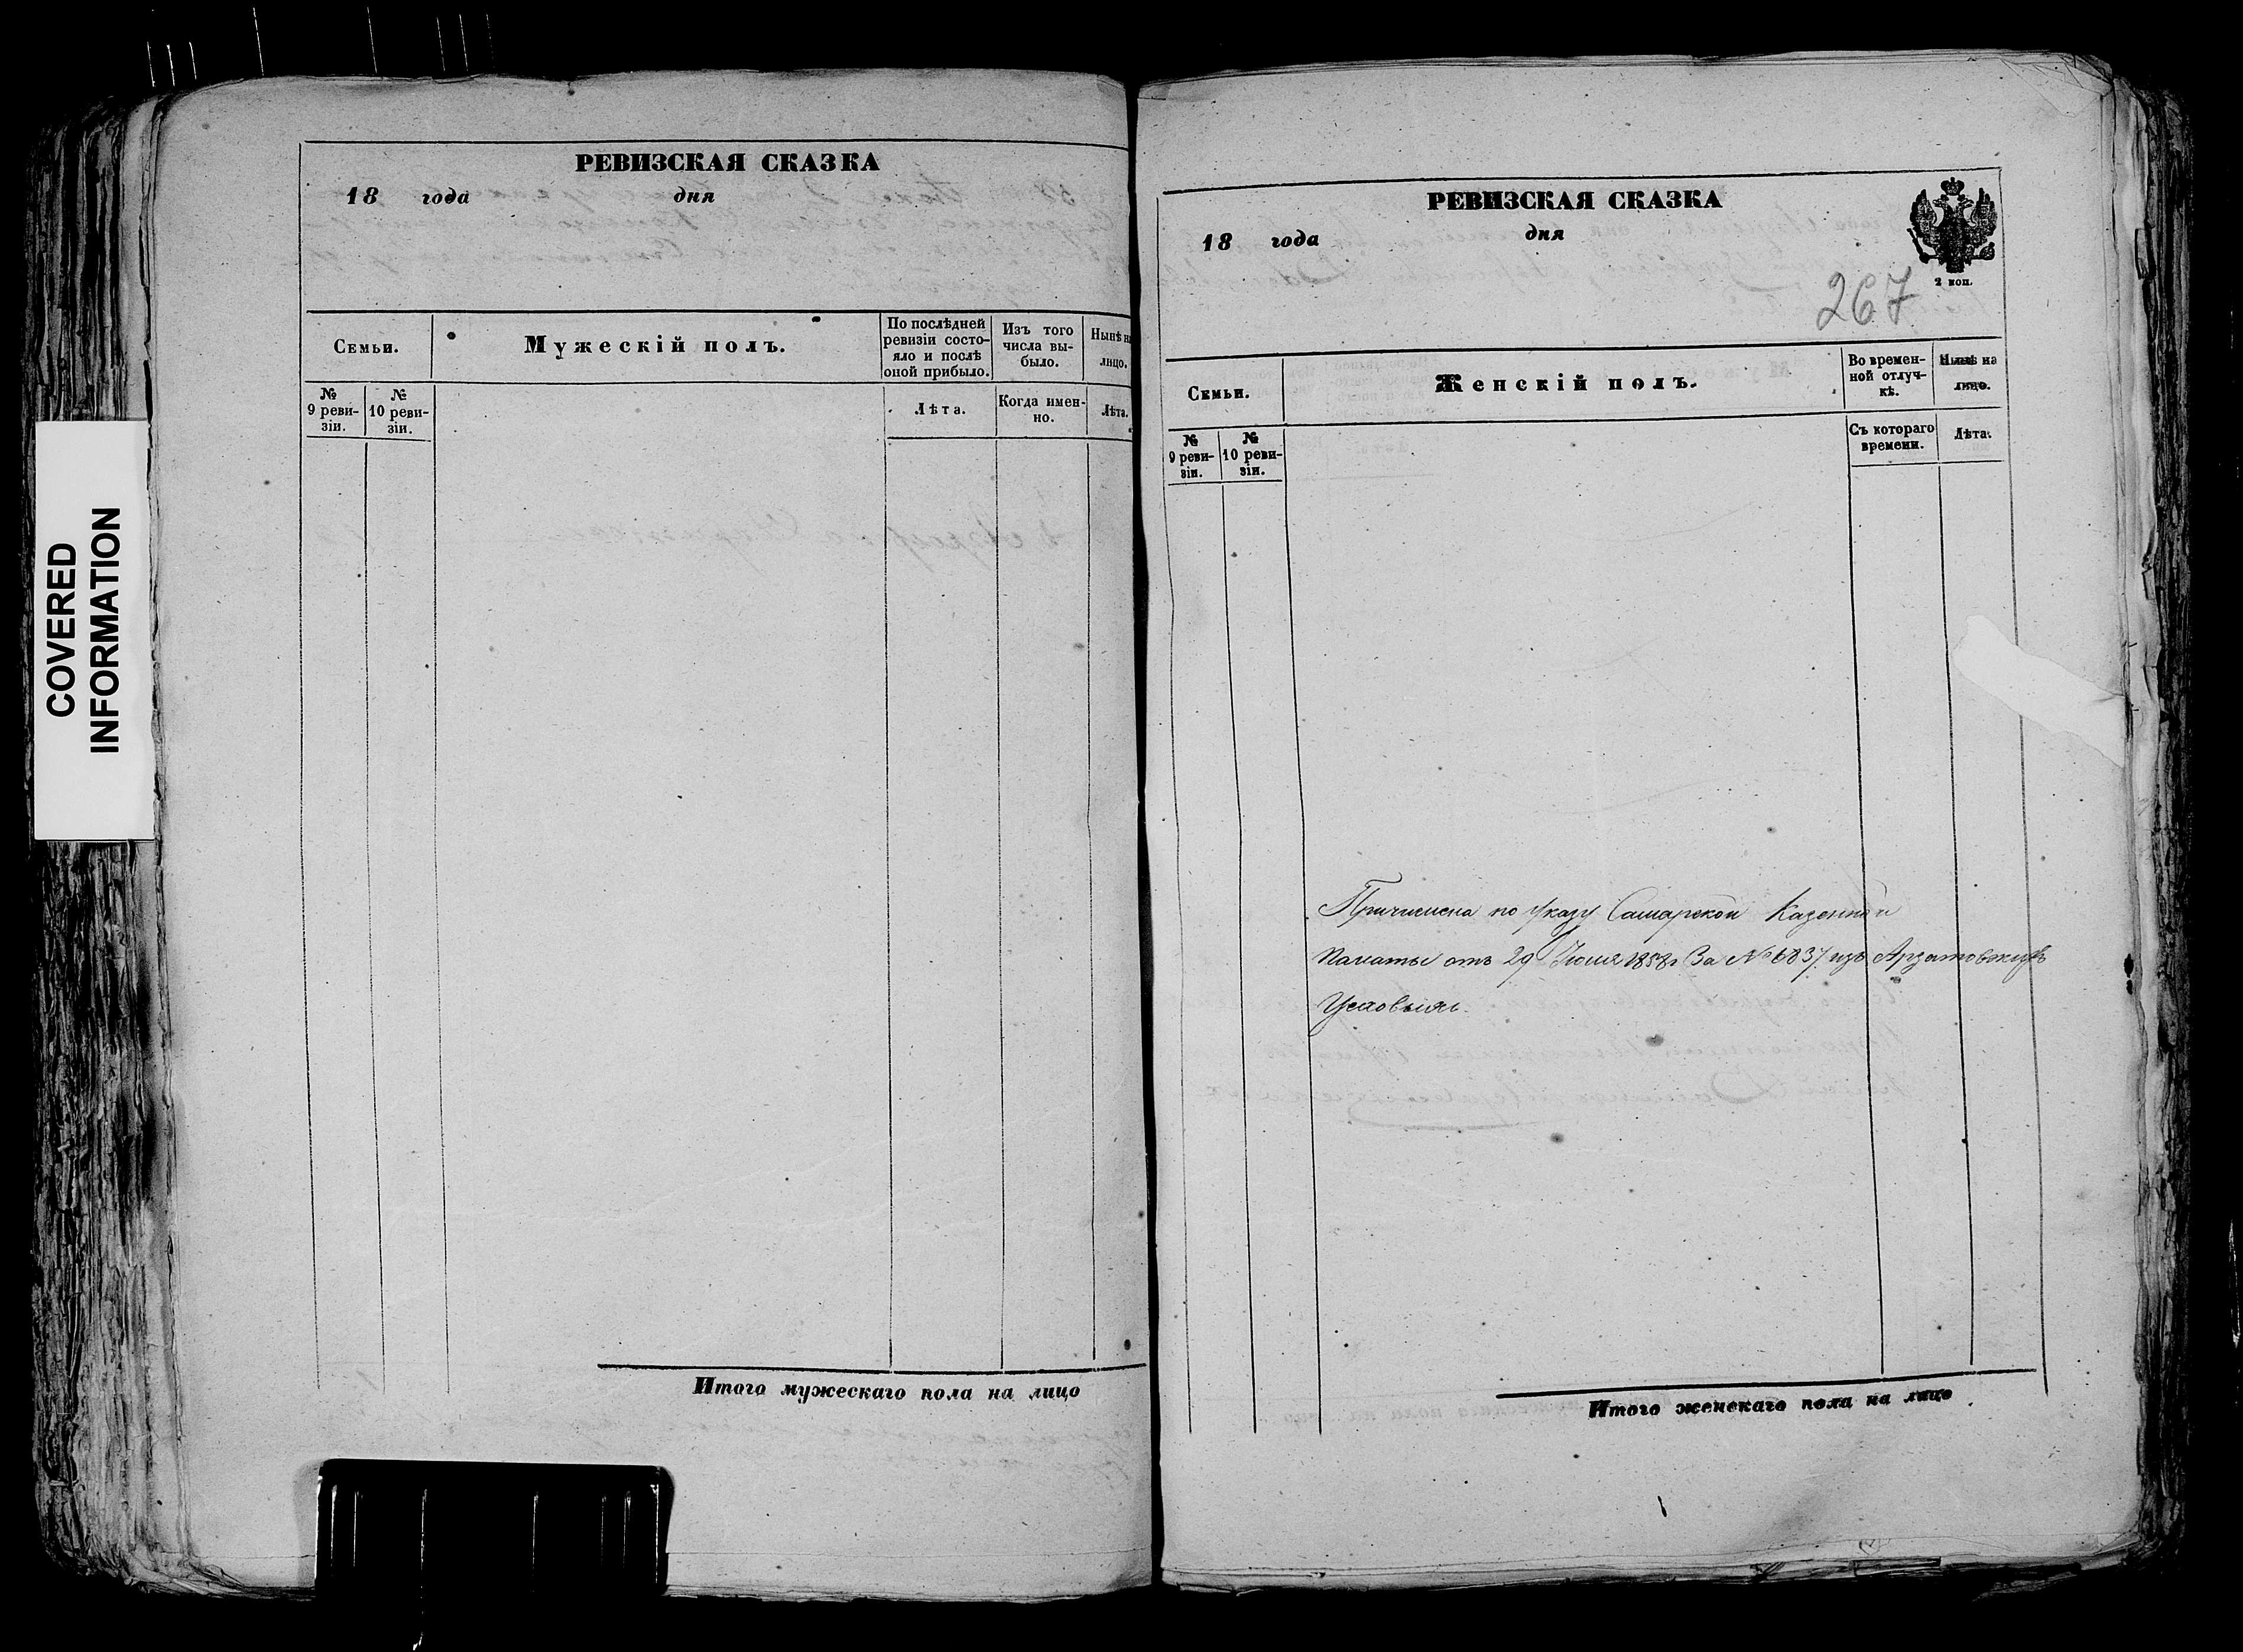 COVERED
INFORMATION
РЕВИЗСКАЯ СКАЗКА
18 года дня
Семьи.
Мужескій полъ.
По послѣдней
ревизіи состо-
яло и послѣ
оной прибыло.
Изъ того
числа вы-
было.
Нынѣ на
лицо.
№
9 реви-
зіи.
№
10 реви-
зіи.
Лѣта.
Когда имен-
но.
Лѣта.
Итого мужескаго пола на лицо
РЕВИЗСКАЯ СКАЗКА
18 года дня
2 коп.
267
Семьи.
Женскій полъ.
Во времен-
ной отлуч-
кѣ.
Нынѣ на
лицо.
№
9 реви-
зіи.
№
10 реви-
зіи.
Съ котораго
времени.
Лѣта.
Причислена по указу Самарской Казенной
Палаты отъ 29 1858г За № 6837 изъ
Итого женскаго пола на лицо